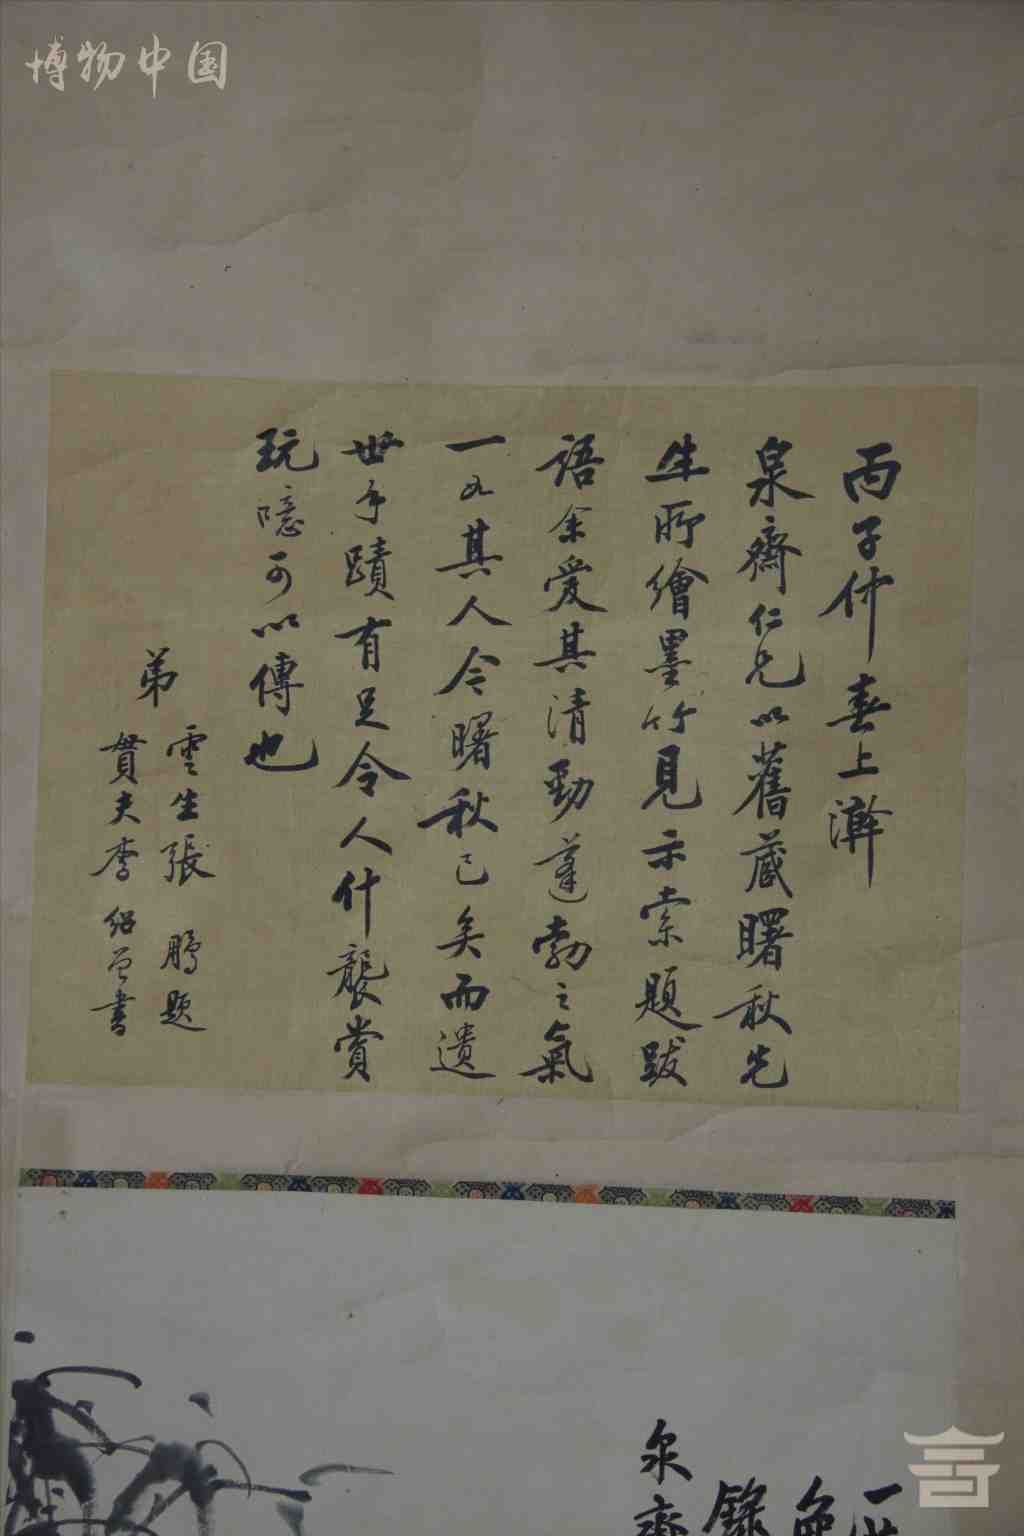 博物中国
丙子仲春上澣
泉齋仁兄以舊蔵曙秋先
生所繪墨竹見示索題跋
語余愛其清勁蓬勃之氣
一如其人今曙秋已矣而遺
世手蹟有足令人什襲賞
玩隱可以傳也
弟
雲生張鵬題
貫夫李紹曾書
一世
色
錄
泉齋